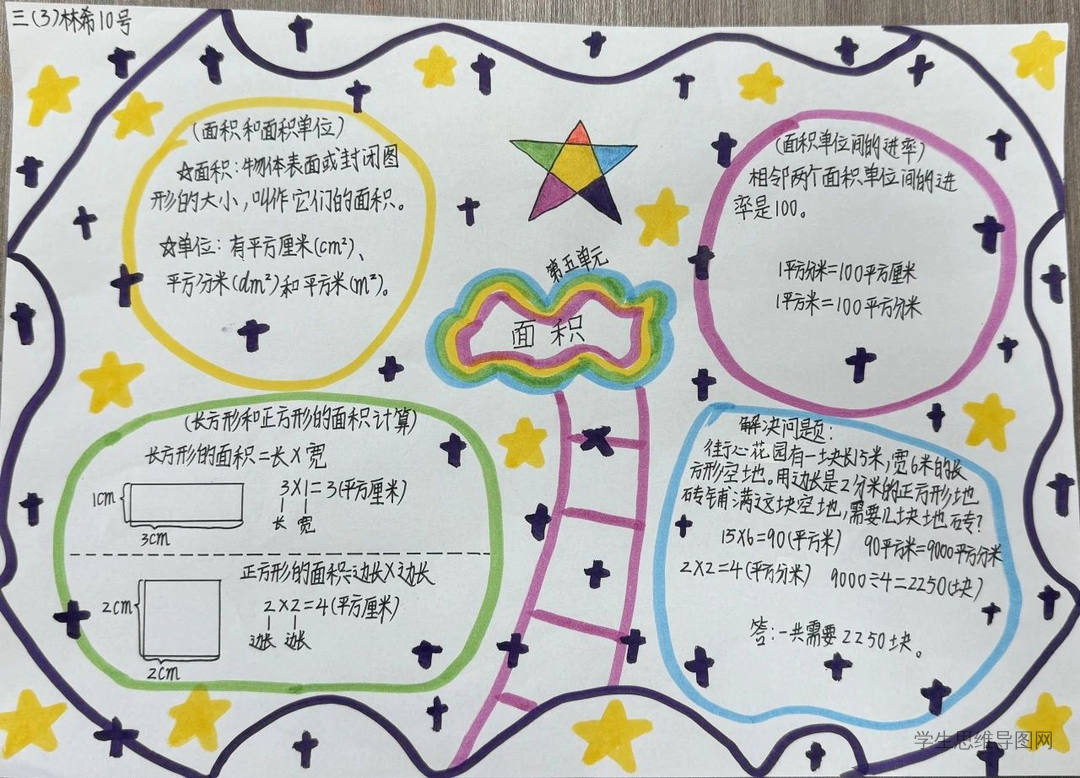 三(3)林希10号
(面积和面积单位)
☆面积:物体表面或封闭图
形的大小,叫作它们的面积。
☆单位:有平方厘米(cm²)、
平方分米(dm²)和平方米(m²)。
(面积单位间的进率)
相邻两个面积单位间的进
率是100。
1平方分米=100平方厘米
1平方米=100平方分米
第五单元
面积
(长方形和正方形的面积计算)
长方形的面积=长×宽
1cm
3cm
3×1=3(平方厘米)
长 宽
正方形的面积=边长×边长
2cm
2cm
2×2=4(平方厘米)
边长 边长
解决问题:
街心花园有一块长15米,宽6米的长
方形空地。用边长是2分米的正方形地
砖铺满这块空地,需要几块地砖?
15×6=90(平方米) 90平方米=9000平方分米
2×2=4(平方分米) 9000÷4=2250(块)
答:一共需要2250块。
学生思维导图网